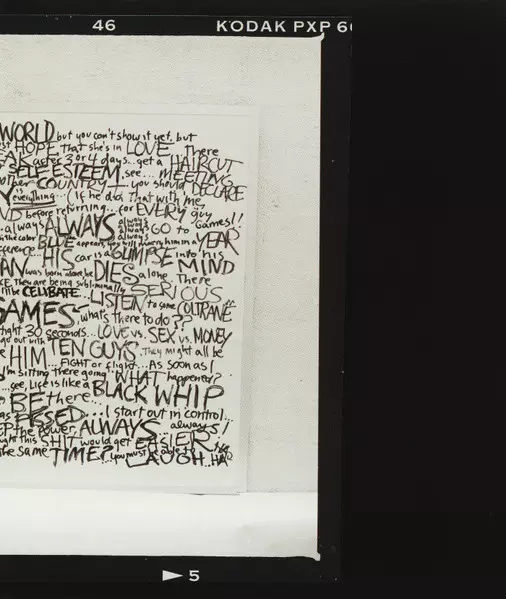 46 KODAK PXP 60
WORLD but you can't show it yet, but
HOPE that she's in LOVE. There
after 3 or 4 days.. get a HAIRCUT
SELF ESTEEM, see... MEETING
COUNTRY — you should DECLARE
everything... (if he did that with me,
before returning... for EVERY guy
..always ALWAYS always always always always GO to Games!!
the color BLUE appears, you will marry him in a YEAR
HIS car is a GLIMPSE into his
was born alone, he DIES alone. There MIND
They are being subliminally SERIOUS
CELIBATE... LISTEN to some COLTRANE
GAMES what's there to do??
30 seconds.. LOVE vs. SEX vs. MONEY
go out with TEN GUYS. They might all be
HIM... FIGHT or flight... As soon as I
I'm sitting there going "WHAT happened?
..see, Life is like a BLACK WHIP
BE there.
PISSED... I start out in control...
the power, ALWAYS... always!
this SHIT would get EASIER.
the same TIME? ..you must be able to LAUGH..HA
5